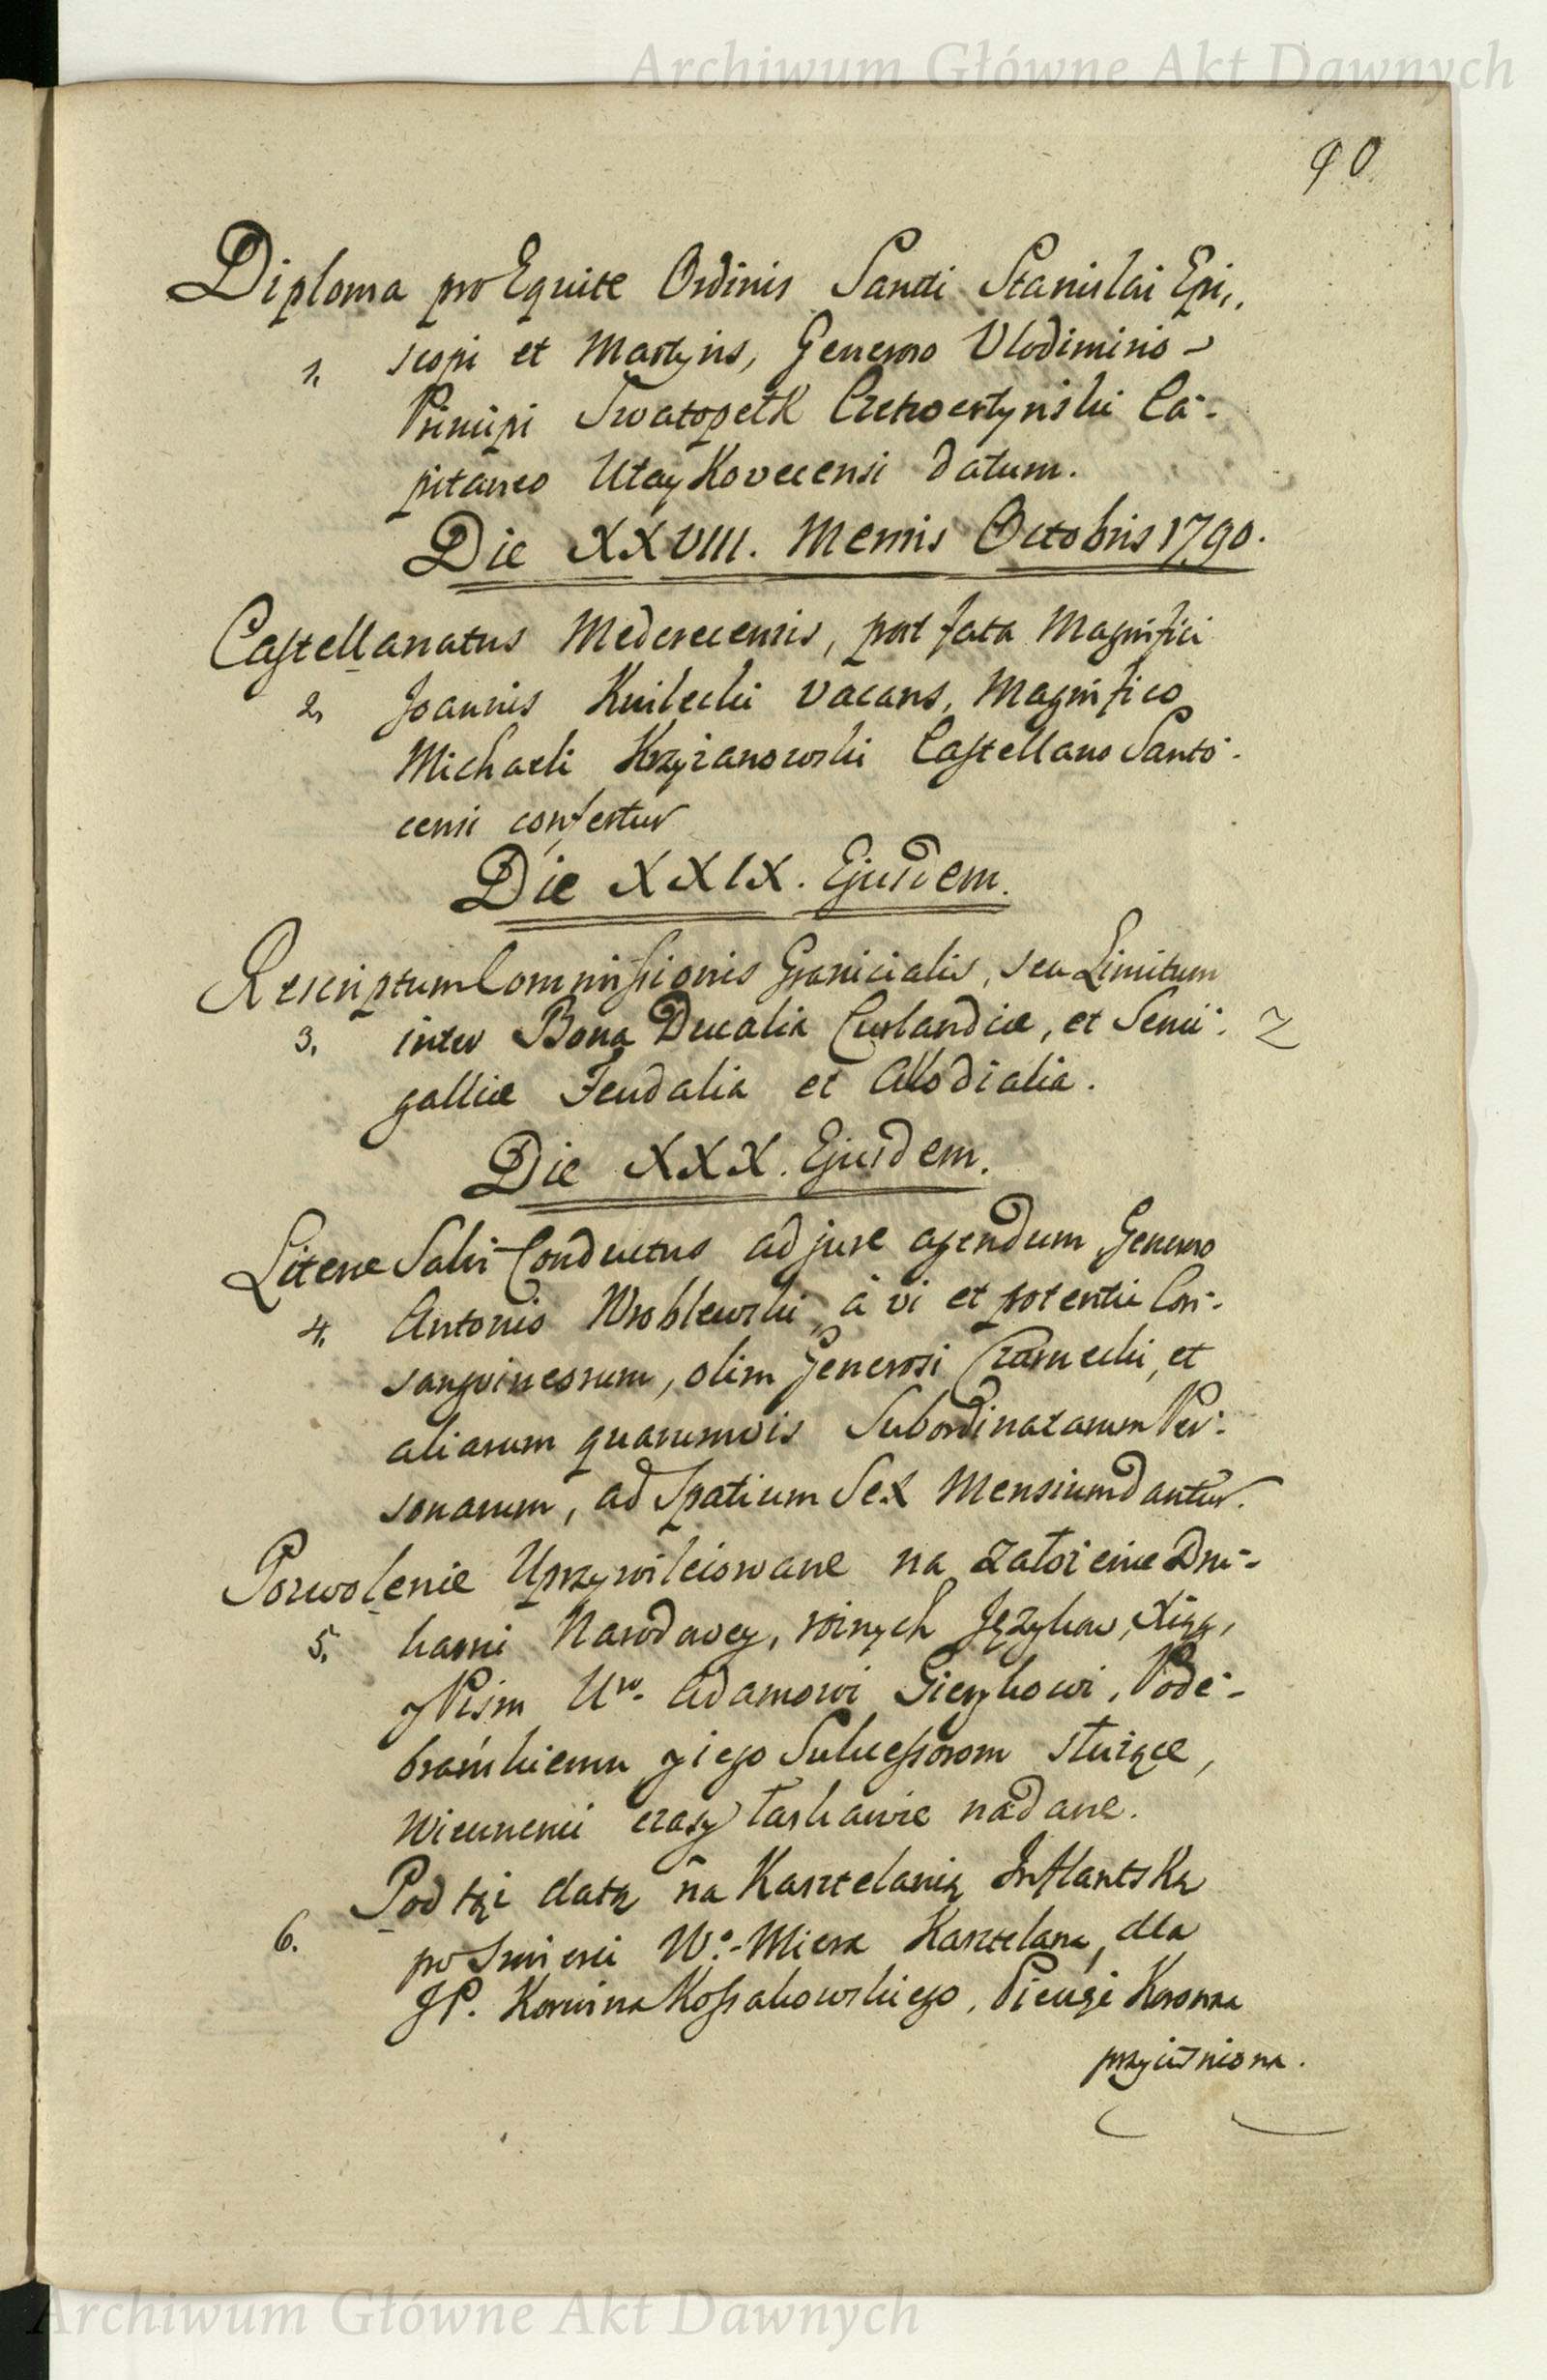 Archiwum Główne Akt Dawnych
90
Diploma pro Equite Ordinis Sancti Stanislai Epi„
1. scopi et Martyris, Generoso Vlodimirio
Principi Swatopełk Czetwertyński Ca-
pitaneo Utaykovecensi datum.
Die XXVIII. Mensis Octobris 1790.
Castellanatus Mederecensis, post fata Magnifici
2. Joannis Kwilecki vacans, Magnifico
Michaeli Krzyżanowski Castellano Santo-
censi confertur
Die XXIX. Ejusdem.
Rescriptum Commissionis Granicialis, seu Limitum
3. inter Bona Ducalia Curlandiæ, et Semi-
galliæ Feudalia et Allodialia.
Die XXX. Ejusdem.
Literæ Salvi Conductus ad jure agendum Generoso
4. Antonio Wroblewski, à vi et potentia Con-
sangvineorum, olim Generosi Czarnecki, et
aliarum quarumvis Subordinatarum Per-
sonarum, ad Spatium Sex Mensium dantur.
Pozwolenie Uprzywileiowane na załoienie Dru-
5. karni Narodowey, roinych Języków, Xiąg,
y Pism Ur. Adamowi Gierykowi, Pode-
brańskiemu y iego Sukcessorom słuiące,
wiecznemi czasy łaskawie nadane.
Pod tąi datą na Kasztelanią Inflantską
6. po Smierci W. Miera Kasztelana, dla
JP. Korwina Kossakowskiego, Pieczęć Koronna
przyciśniona.
Archiwum Główne Akt Dawnych